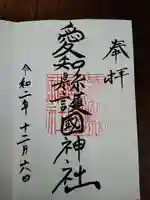 奉拝
愛知縣護國神社
令和二年十二月六日